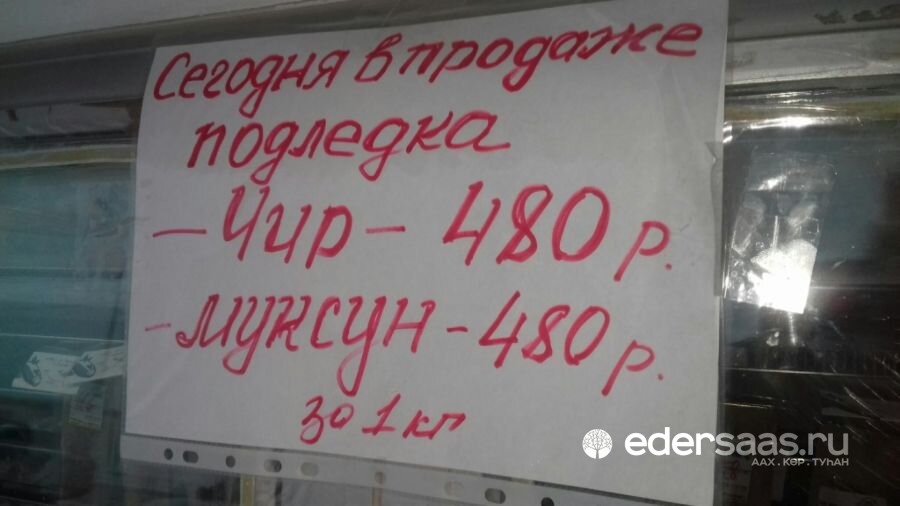 Сегодня в продаже
подледка
- Чир - 480 р.
- муксун - 480 р.
за 1 кг
edersaas.ru
ААХ.КӨР.ТУҺАН